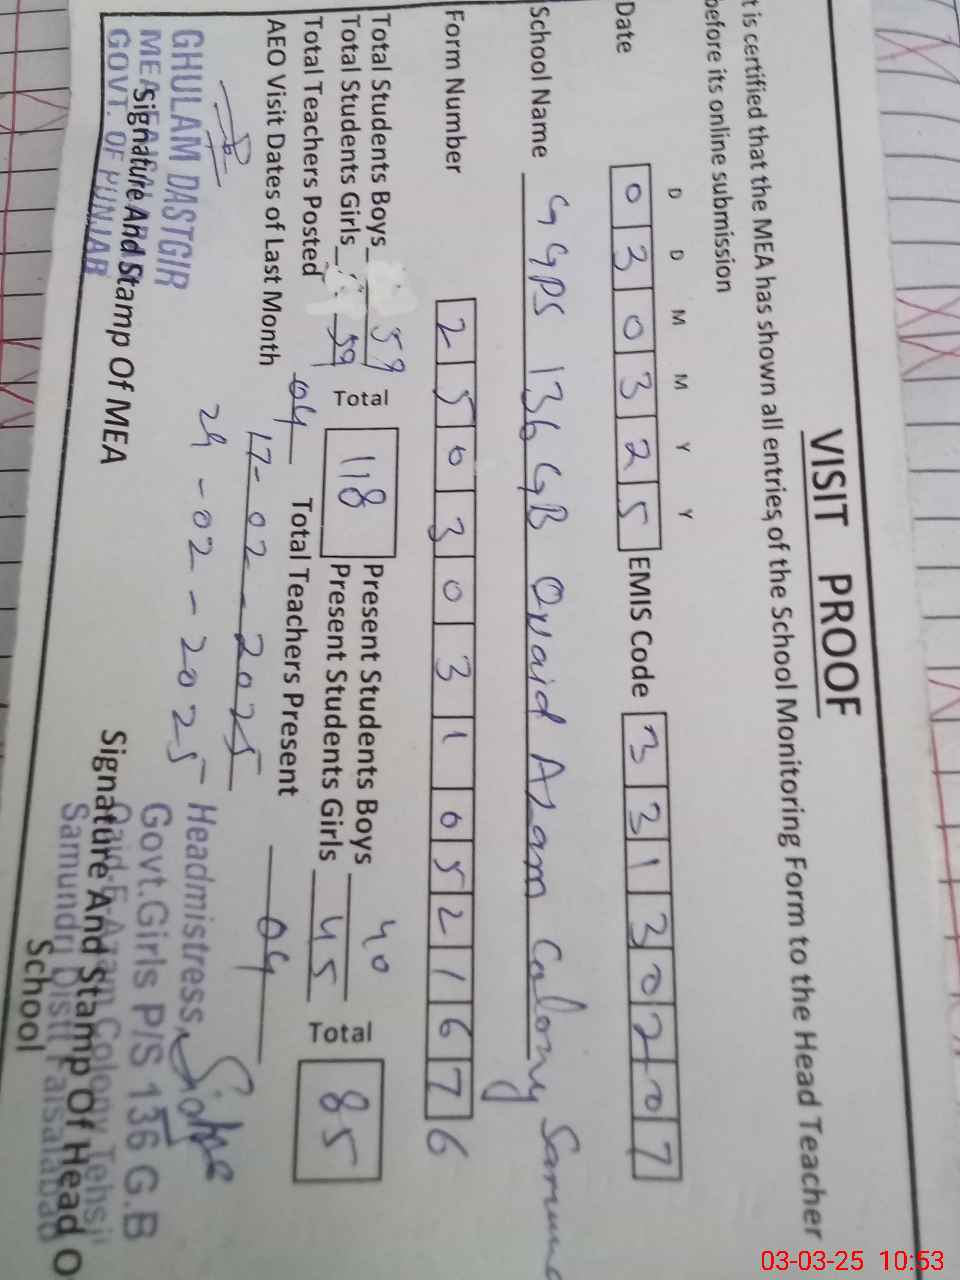 VISIT PROOF
t is certified that the MEA has shown all entries of the School Monitoring Form to the Head Teacher
before its online submission
D D M M Y Y
Date 0 3 0 3 2 5 EMIS Code 3 3 1 3 0 2 0 7
School Name GGPS 136 GB Quaid Azam Colony Samund
Form Number 2 5 0 3 0 3 1 0 5 2 1 6 7 6
Total Students Boys 59 Total 118 Present Students Boys 40 Total 85
Total Students Girls 59 Present Students Girls 45
Total Teachers Posted 04 Total Teachers Present 04
AEO Visit Dates of Last Month 17-02-2025
24-02-2025
GHULAM DASTGIR
MEA
GOVT. OF PUNJAB
Signature And Stamp Of MEA
Headmistress
Govt.Girls P/S 136 G.B
Qaid-E-Azam Colony Tehsil
Samundri Distt Faisalabad
Signature And Stamp Of Head O
School
03-03-25 10:53